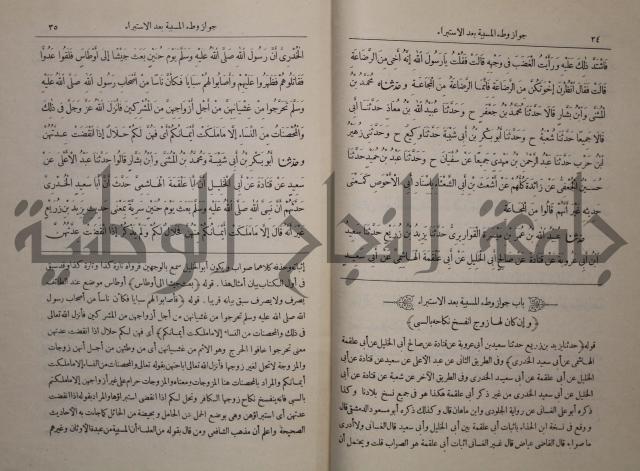 ٣٤
جواز وطء المسبية بعد الاستبراء
فاشتد ذلك عليه ورأيت الغضب في وجهه قالت فقلت يا رسول الله إنه أخي من الرضاعة
قالت فقال انظرن إخوتكن من الرضاعة فإنما الرضاعة من المجاعة وحدثناه محمد بن
المثنى وابن بشار قالا حدثنا محمد بن جعفر ح وحدثنا عبيد الله بن معاذ حدثنا أبي
قالا جميعا حدثنا شعبة ح وحدثنا أبو بكر بن أبي شيبة حدثنا وكيع ح وحدثني زهير
ابن حرب حدثنا عبد الرحمن بن مهدي جميعا عن سفيان ح وحدثنا عبد بن حميد حدثنا
حسين الجعفي عن زائدة كلهم عن أشعث بن أبي الشعثاء بإسناد أبي الأحوص كمعنى
حديثه غير أنهم قالوا من المجاعة
حدثنا عبيد الله بن عمر بن ميسرة القواريري حدثنا يزيد بن زريع حدثنا سعيد
ابن أبي عروبة عن قتادة عن صالح أبي الخليل عن أبي علقمة الهاشمي عن أبي سعيد
باب جواز وطء المسبية بعد الاستبراء
﴿وإن كان لها زوج انفسخ نكاحه بالسبي﴾
قوله ﴿حدثنا يزيد بن زريع حدثنا سعيد بن أبي عروبة عن قتادة عن صالح أبي الخليل عن أبي علقمة
الهاشمي عن أبي سعيد الخدري﴾ وفي الطريق الثاني عن عبد الأعلى عن سعيد عن قتادة عن أبي
الخليل عن أبي علقمة عن أبي سعيد الخدري وفي الطريق الآخر عن شعبة عن قتادة عن أبي
الخليل عن أبي سعيد الخدري من غير ذكر أبي علقمة هكذا هو في جميع نسخ بلادنا وكذا
ذكره أبو علي الغساني عن رواية الجلودي وابن ماهان قال وكذلك ذكره أبو مسعود الدمشقي قال
ووقع في نسخة ابن الحذاء باثبات أبي علقمة بين أبي الخليل وأبي سعيد قال الغساني ولا أدري
ما صوابه قال القاضي عياض قال غير الغساني اثبات أبي علقمة هو الصواب قلت ويحتمل أن
جواز وطء المسبية بعد الاستبراء
٣٥
الخدري أن رسول الله صلى الله عليه وسلم يوم حنين بعث جيشا إلى أوطاس فلقوا عدوا
فقاتلوهم فظهروا عليهم وأصابوا لهم سبايا فكأن ناسا من أصحاب رسول الله صلى الله عليه
وسلم تحرجوا من غشيانهن من أجل أزواجهن من المشركين فأنزل الله عز وجل في ذلك
والمحصنات من النساء إلا ما ملكت أيمانكم أي فهن لكم حلال إذا انقضت عدتهن
وحدثنا أبو بكر بن أبي شيبة ومحمد بن المثنى وابن بشار قالوا حدثنا عبد الأعلى عن
سعيد عن قتادة عن أبي الخليل أن أبا علقمة الهاشمي حدث أن أبا سعيد الخدري
حدثهم أن نبي الله صلى الله عليه وسلم بعث يوم حنين سرية بمعنى حديث يزيد بن زريع
غير أنه قال إلا ما ملكت أيمانكم منهن فحلال لكم ولم يذكر إذا انقضت عدتهن
إثباته وحذفه كلاهما صواب ويكون أبو الخليل سمع بالوجهين فرواه تارة كذا وتارة كذا وقد سبق
في أول الكتاب بيان أمثال هذا. قوله ﴿بعث جيشا إلى أوطاس﴾ أوطاس موضع عند الطائف
يصرف ولا يصرف سبق بيانه قريبا. قوله ﴿فأصابوا لهم سبايا فكأن ناسا من أصحاب رسول
الله صلى الله عليه وسلم تحرجوا من غشيانهن من أجل أزواجهن من المشركين فأنزل الله تعالى
في ذلك والمحصنات من النساء إلا ما ملكت أيمانكم﴾ أي فهن لكم حلال اذا انقضت عدتهن
معنى تحرجوا خافوا الحرج وهو الاثم من غشيانهن أي من وطئهن من أجل أنهن زوجات
والمزوجة لا تحل لغير زوجها فأنزل الله تعالى اباحتهن بقوله تعالى والمحصنات من النساء إلا ما ملكت
أيمانكم والمراد بالمحصنات هنا المزوجات ومعناه والمزوجات حرام على غير أزواجهن إلا ما ملكتم
بالسبي فانه ينفسخ نكاح زوجها الكافر وتحل لكم إذا انقضى استبراؤها والمراد بقوله اذا انقضت
عدتهن أي استبراؤهن وهي بوضع الحمل عن الحامل وبحيضة من الحائل كما جاءت به الأحاديث
الصحيحة واعلم أن مذهب الشافعي ومن قال بقوله من العلماء أن المسبية من عبدة الأوثان وغيرهم
جامعة النجاح الوطنية